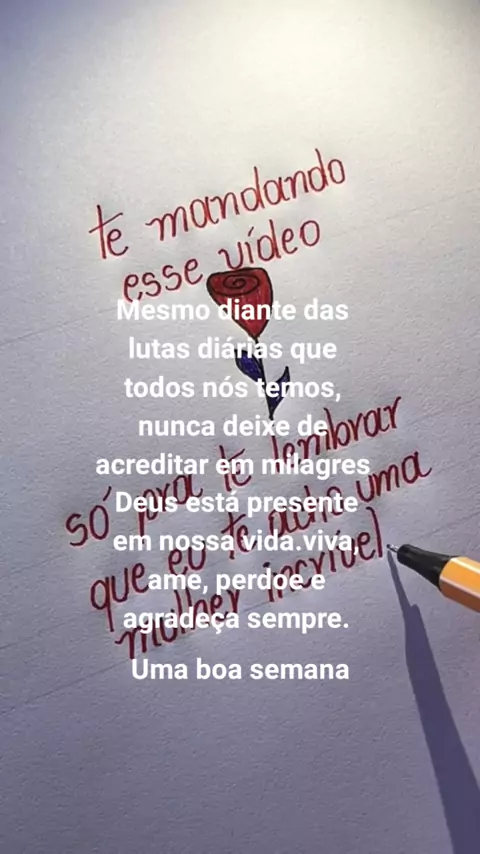 te mandando
esse vídeo
Mesmo diante das
lutas diárias que
todos nós temos,
nunca deixe de
acreditar em milagres
Deus está presente
em nossa vida.viva,
ame, perdoe e
agradeça sempre.
Uma boa semana
só pra te lembrar
que eu te acho uma
mulher incrível